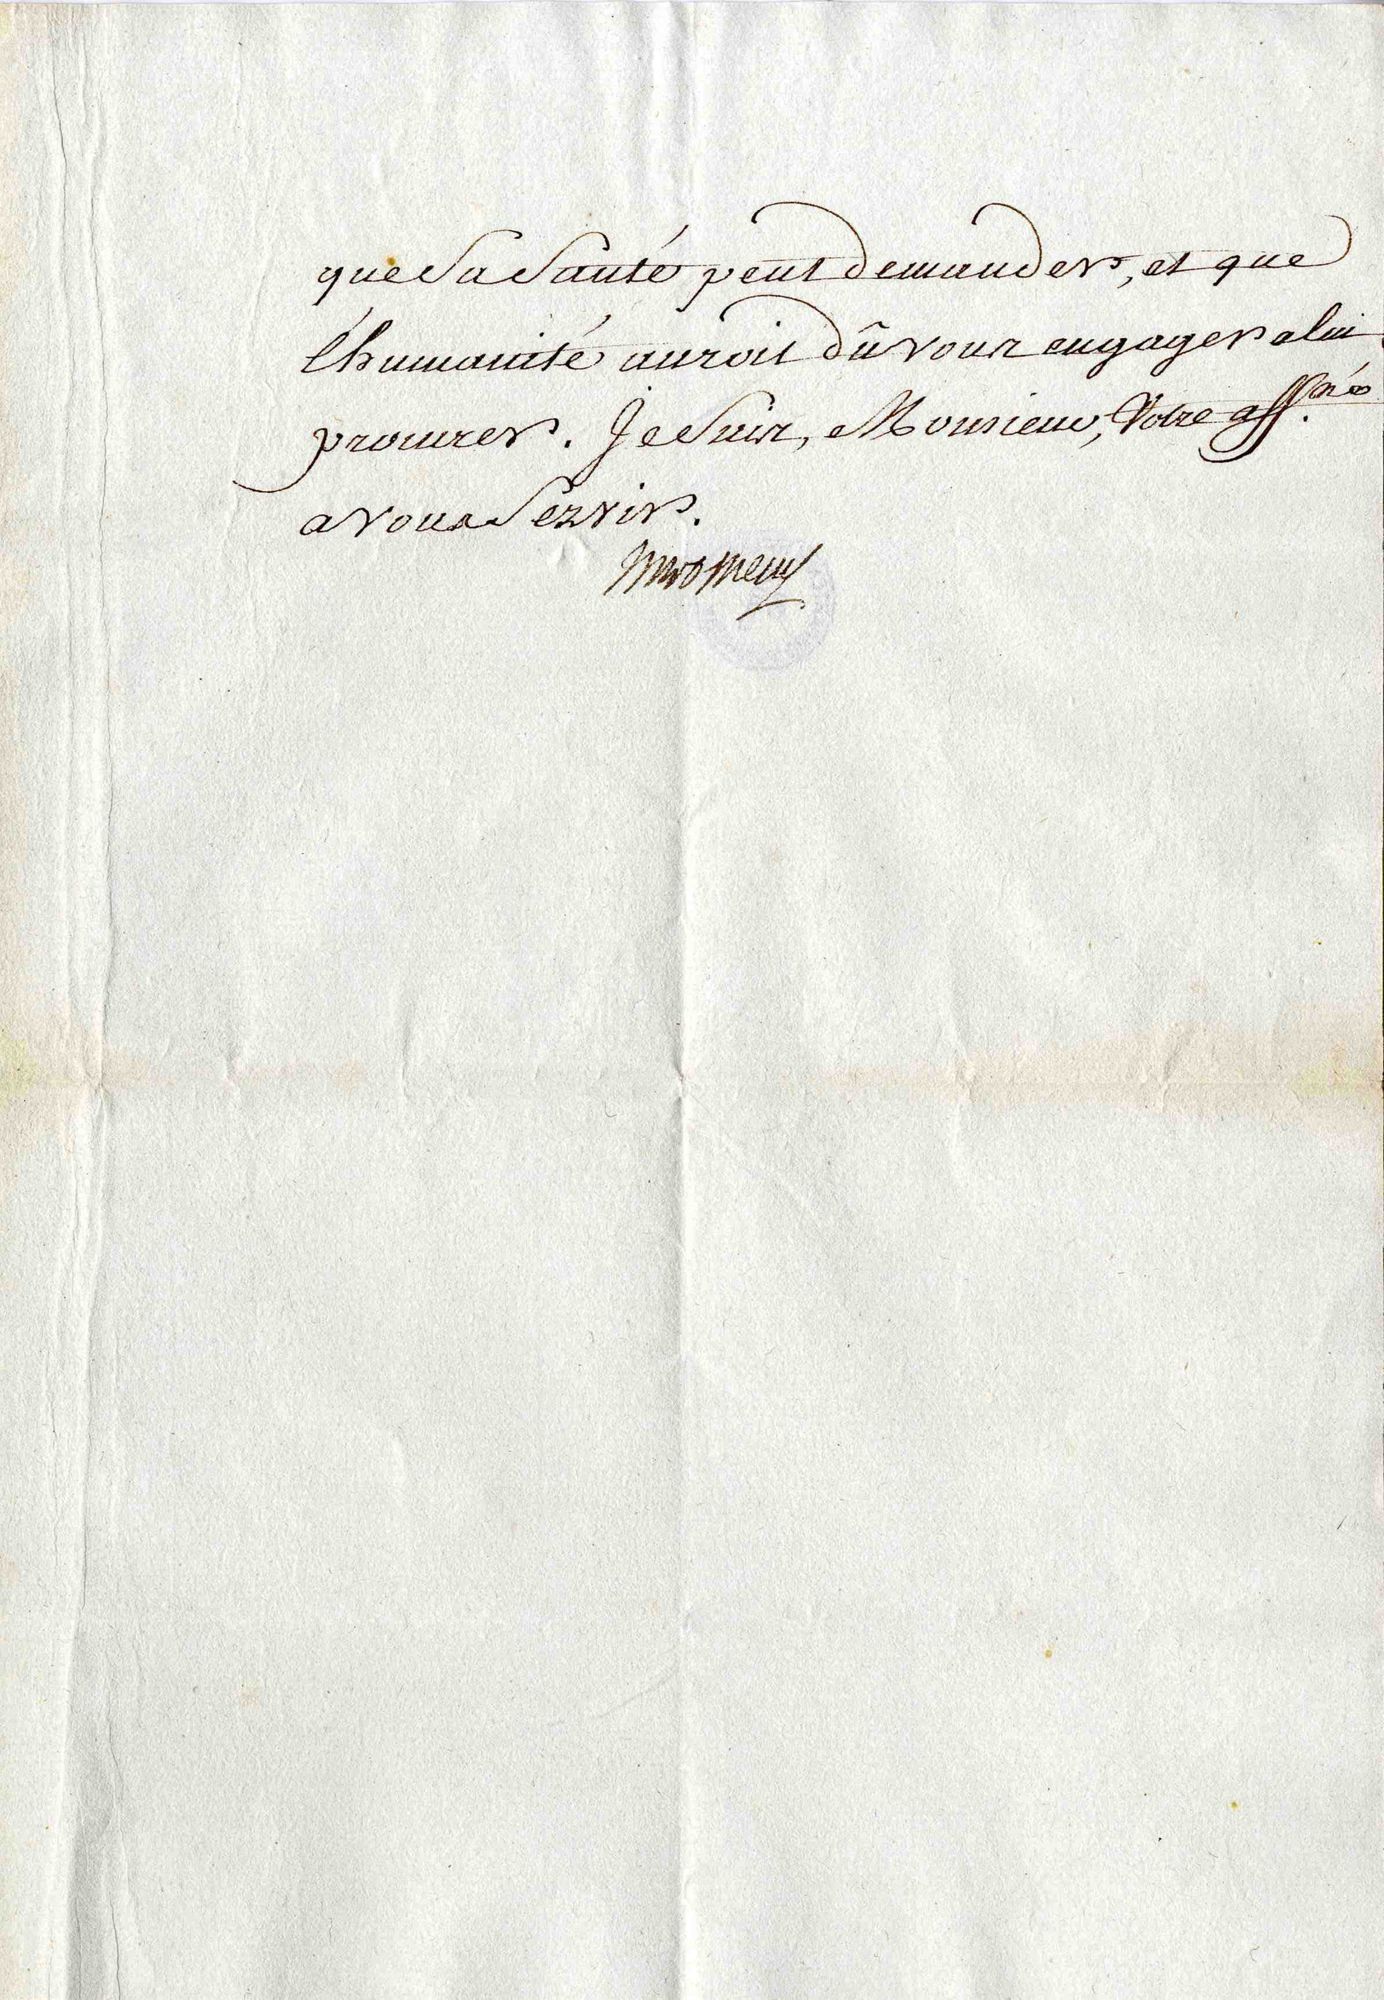 que Sa Santé peut demander, et que
l'humanité auroit dû vous engager a lui
procurer. Je Suis, Monsieur, Votre aff.né
a vous Servir.
Miromenil